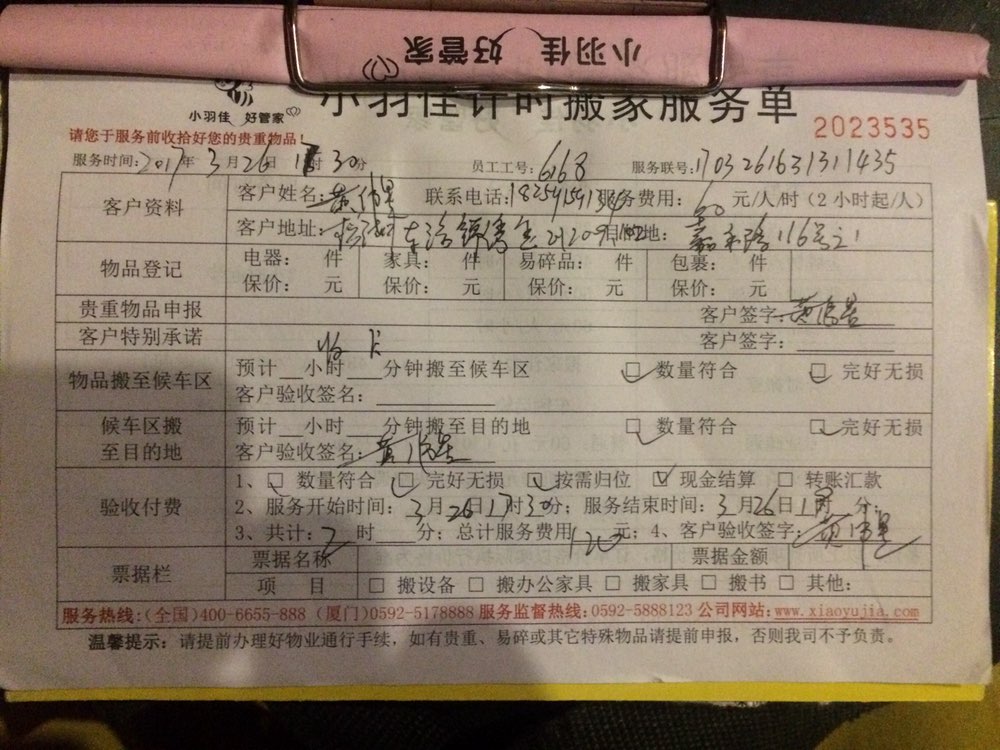 小羽佳 好管家
小羽佳 好管家
小羽佳计时搬家服务单
2023535
请您于服务前收拾好您的贵重物品!
服务时间:2017年3月26日17时30分 员工工号:6168 服务联号:
客户资料 客户姓名: 联系电话: 服务费用:60元/人/时(2小时起/人)
客户地址: 目的地: 嘉禾路116号之1
物品登记 电器: 件 家具: 件 易碎品: 件 包裹: 件
保价: 元 保价: 元 保价: 元 保价: 元
贵重物品申报 客户签字:
客户特别承诺 客户签字:
物品搬至候车区 预计 小时 分钟搬至候车区 □ 数量符合 □ 完好无损
客户验收签名:
候车区搬至目的地 预计 小时 分钟搬至目的地 □ 数量符合 □ 完好无损
客户验收签名:
验收付费 1、□ 数量符合 □ 完好无损 □ 按需归位 □ 现金结算 □ 转账汇款
2、服务开始时间:3月26日17时30分;服务结束时间:3月26日 时 分;
3、共计:2时 分;总计服务费用120元;4、客户验收签字:
票据栏 票据名称 票据金额
项 目 □ 搬设备 □ 搬办公家具 □ 搬家具 □ 搬书 □ 其他:
服务热线:(全国)400-6655-888 (厦门)0592-5178888 服务监督热线:0592-5888123 公司网站:www.xiaoyujia.com
温馨提示:请提前办理好物业通行手续,如有贵重、易碎或其它特殊物品请提前申报,否则我司不予负责。